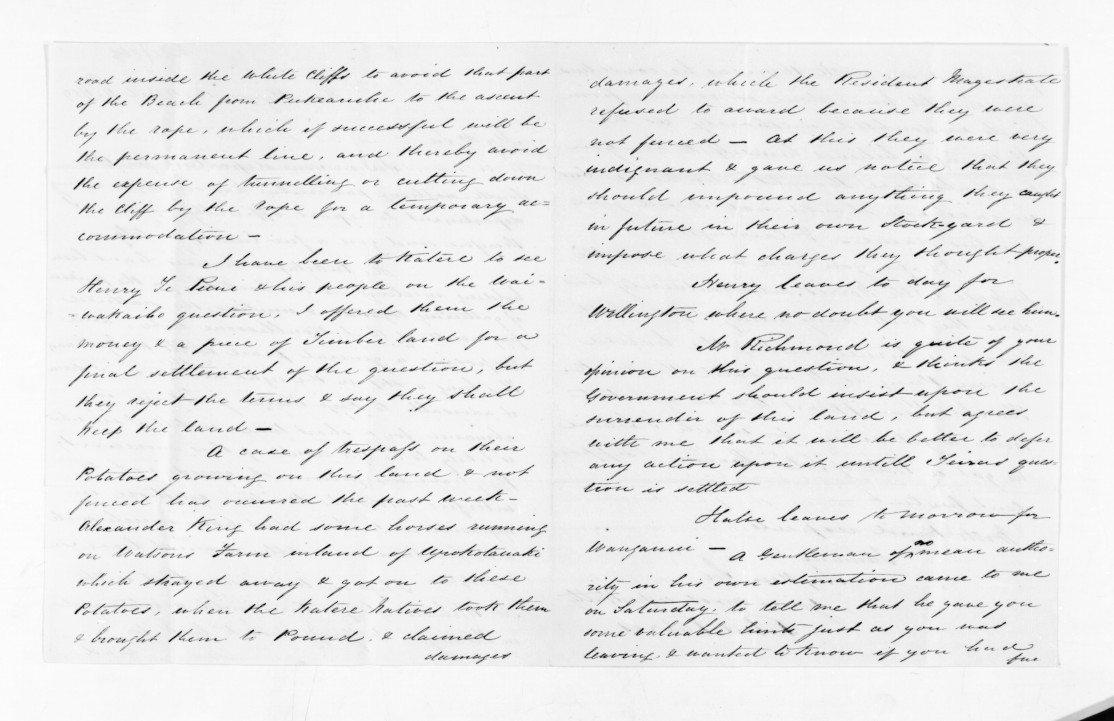 road inside the White Cliffs to avoid that part
of the Beach from Pukearuhe to the ascent
by the rope, which if successful will be
the permanent line, and thereby avoid
the expense of tunnelling or cutting down
the Cliff by the rope for a temporary ac=
commodation —
I have been to Katere to see
Henry Te Puni & his people on the Wai=
wakaiho question, I offered them the
money & a piece of Timber land for a
final settlement of the question, but
they reject the terms & say they shall
keep the land —
A case of trespass on their
Potatoes growing on this land & not
fenced has occured the past week —
Alexander King had some horses running
on Watsons Farm inland of
which strayed away & got on to these
Potatoes, when the Katere Natives took them
& brought them to Pound, & claimed
damages
damages, which the Resident Magestrate
refused to award because they were
not fenced — at this they were very
indignant & gave us notice that they
should impound anything they caught
in future in their own Stock-yard &
impose what charges they thought proper.
Henry leaves to day for
Wellington where no doubt you will see him.
Mr Richmond is quite of your
opinion on this question, & thinks the
Government should insist upon the
surrender of this land, but agrees
with me that it will be better to defer
any action upon it untill Ques=
tion is settled
Halse leaves to morrow for
Wanganui — A Gentleman of no mean autho=
rity in his own estimation came to me
on Saturday, to tell me that he gave you
some valuable hints just as you was
leaving & wanted to know if you had